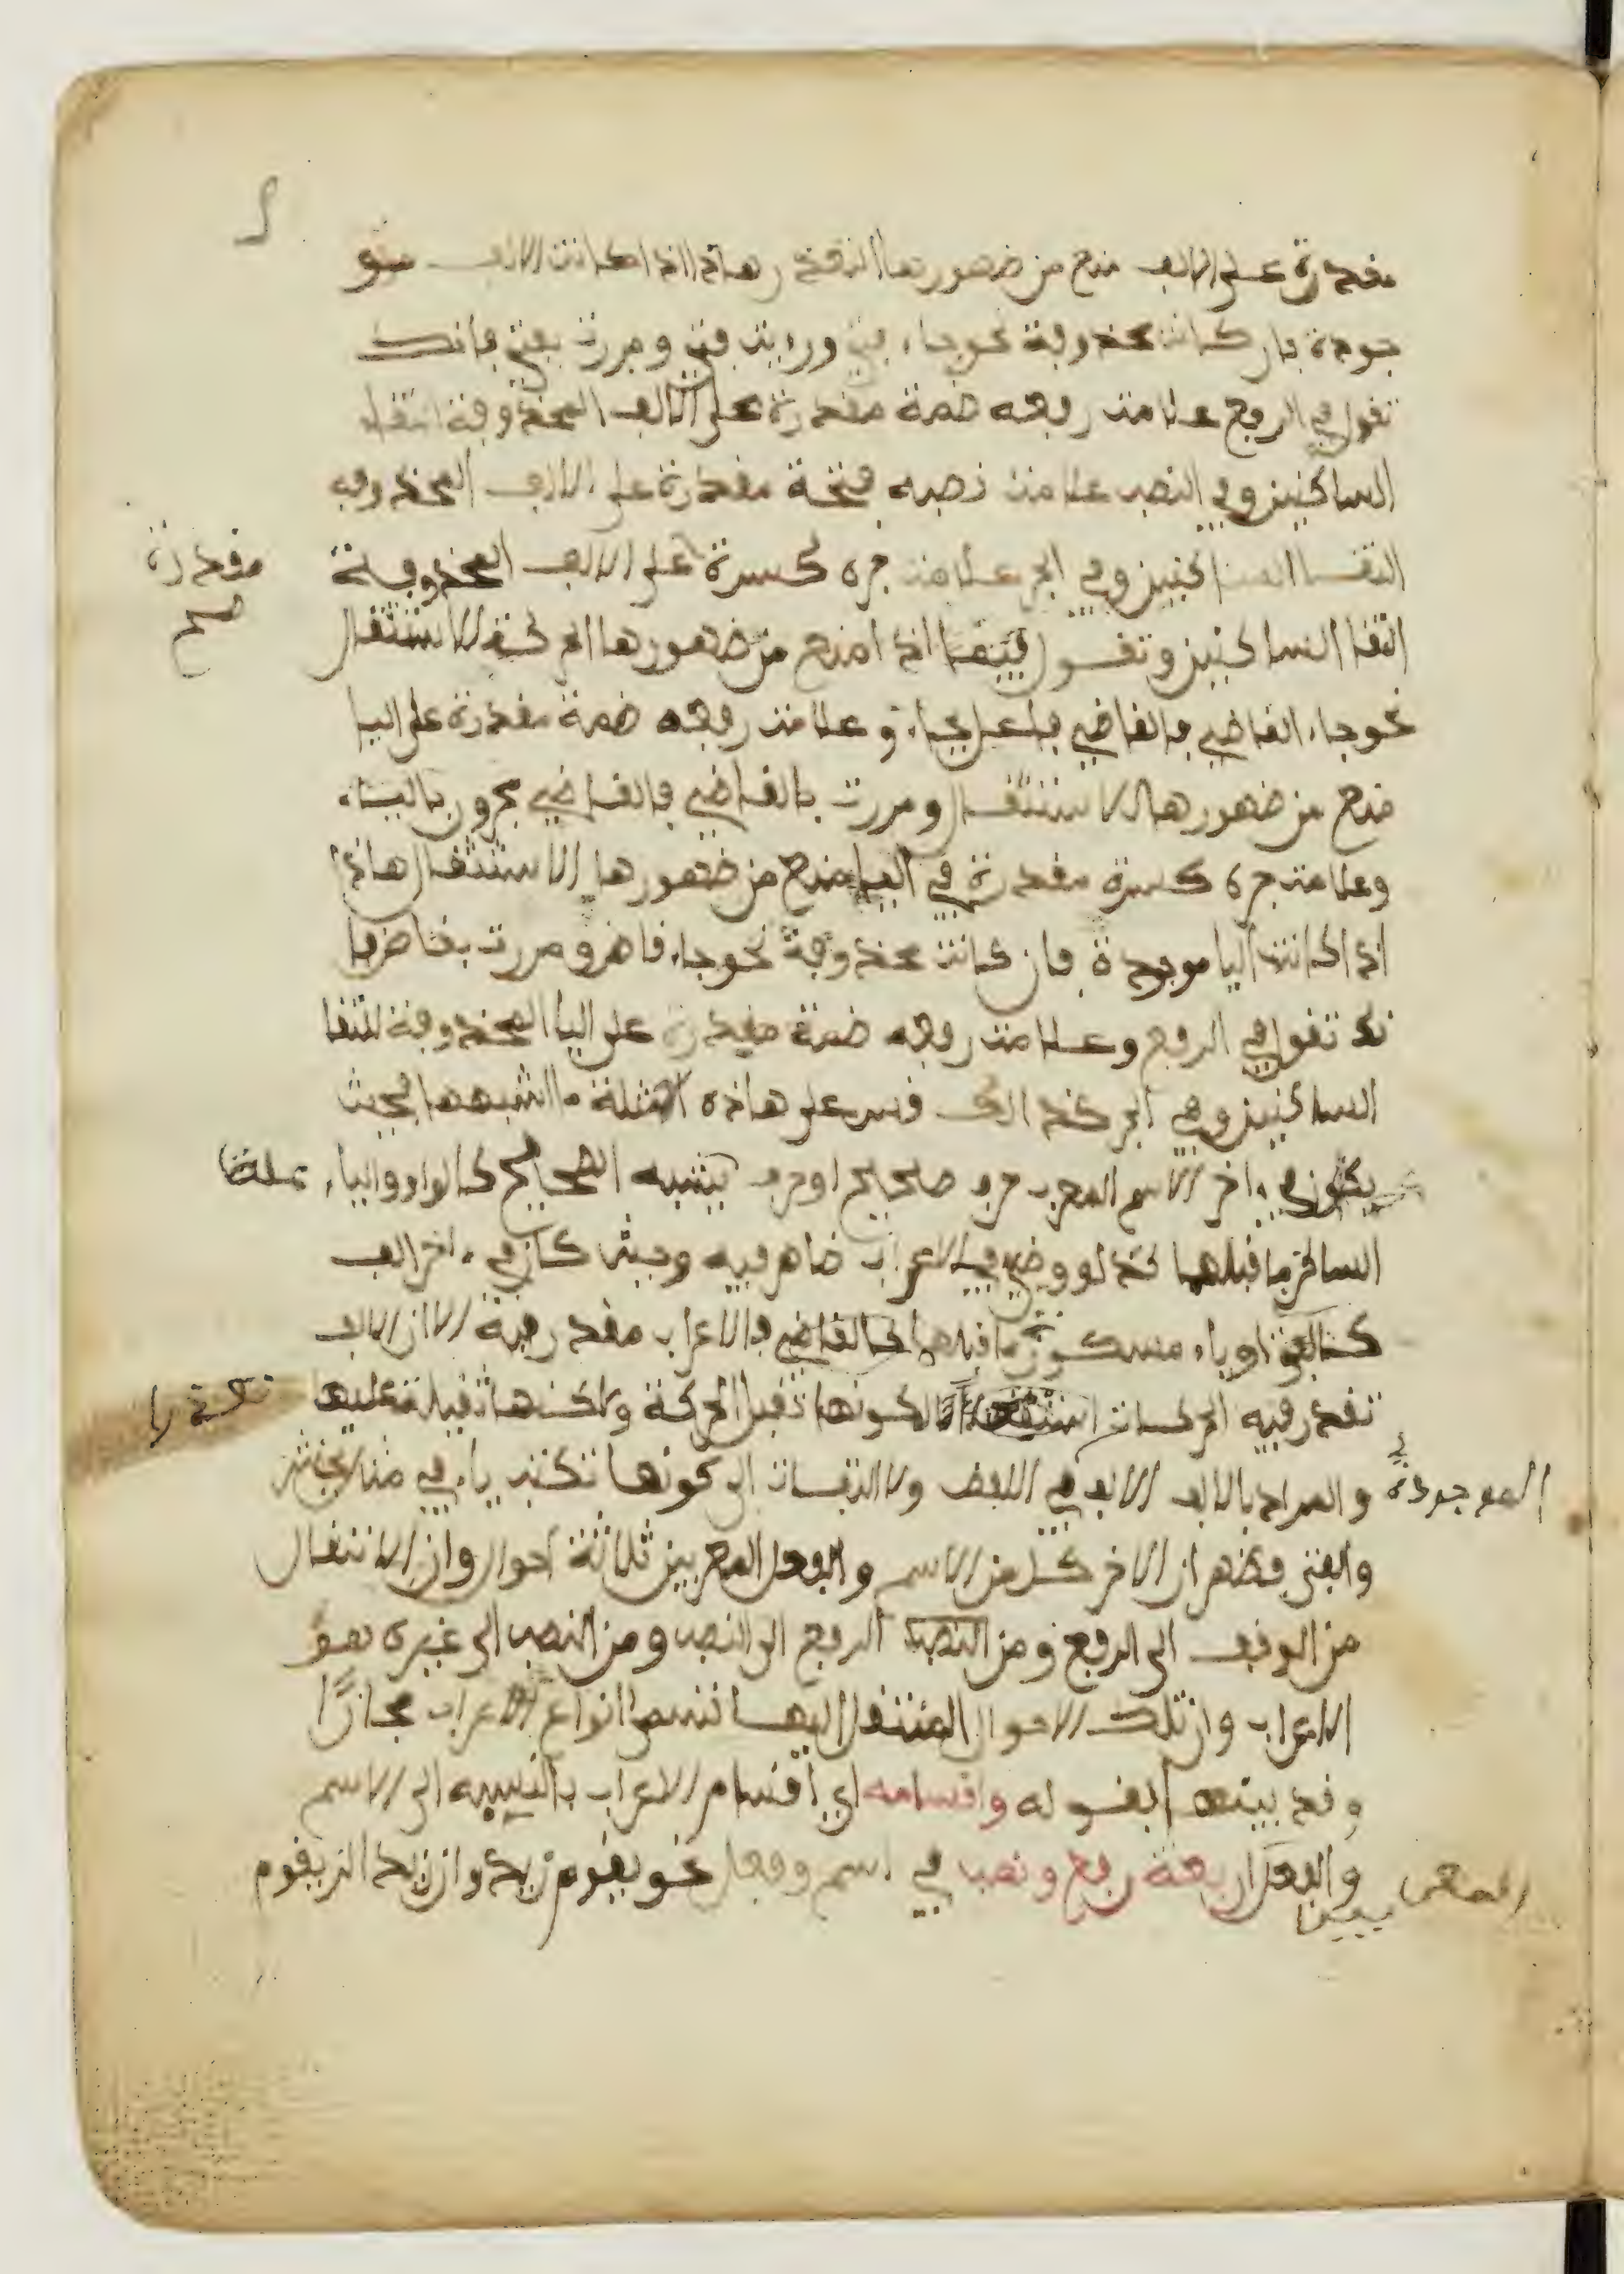 مقدرة على الالف منع من ضهورها التعذر هاذا اذا كانت الالف مو
جودة فان كانت محذوفة نحو جاء فتى ورءيت فتى ومررت بفتى فانك
تقول في الرفع علامت رفعه ضمة مقدرة على الالف المحذوفة التقاء
الساكنين وفي النصب علامت نصبه فتحة مقدرة على الالف المحذوفه
التقا الساكنين وفي الجر علامت جره كسرة على الالف المحذوفة
مقدرة
صح
التقا الساكنين وتقول فيما اذا منع من ضهورها الحركة الاستثقال
نحو جاء القاضي فالقاضي فاعل بجاء وعلامت رفعه ضمة مقدرة على اليا
منع من ضهورها الاستثقال ومررت بالقاضي فالقاضي مجرور بالباء
وعلامت جره كسرة مقدرة في اليا منع من ضهورها الاستثقال هاذا
اذا كانت اليا موجودة فان كانت محذوفة نحو جاء قاض ومررت بقاض فا
نك تقول في الرفع وعلامت رفعه ضمة مقدرة على اليا المحذوفة لالتقا
الساكنين وفي الجر كذالك وقس على هاذه الامثلة ما اشبهها فحيث
يكون في ءاخر الاسم المعرب حرف صحيح او حرف يشبه الصحيح كالواو والياء
الساكن ما قبلهما فالاعراب ضاهر فيه وحيث كان في ءاخر الف
كالفتى او ياء مكسور ما قبلها كالقاضي فالاعراب مقدر فيه الا ان الالف
تقدر فيه الحركات لكونها تقبل الحركة ولاكنها ثقيلة عليها
الموجودة
والمراد بالالف الالف في اللفض ولا التفات الى كونها تكتب ياء في مثل يخشى
والفتى فضهر ان الاخر كل من الاسم والفعل المعربين ثلاثة احوال وان الانتقال
من الوقف الى الرفع ومن الرفع الى النصب ومن النصب الى غيره هو
الاعراب وان تلك الاحوال المنتقل اليها تسمى انواع الاعراب مجازًا
وقد بينها بقوله واقسامه اي اقسام الاعراب بالنسبه الى الاسم
والفعل اربعة رفع ونصب في اسم وفعل نحو يقوم زيد وان زيدا لن يقوم
المعربين